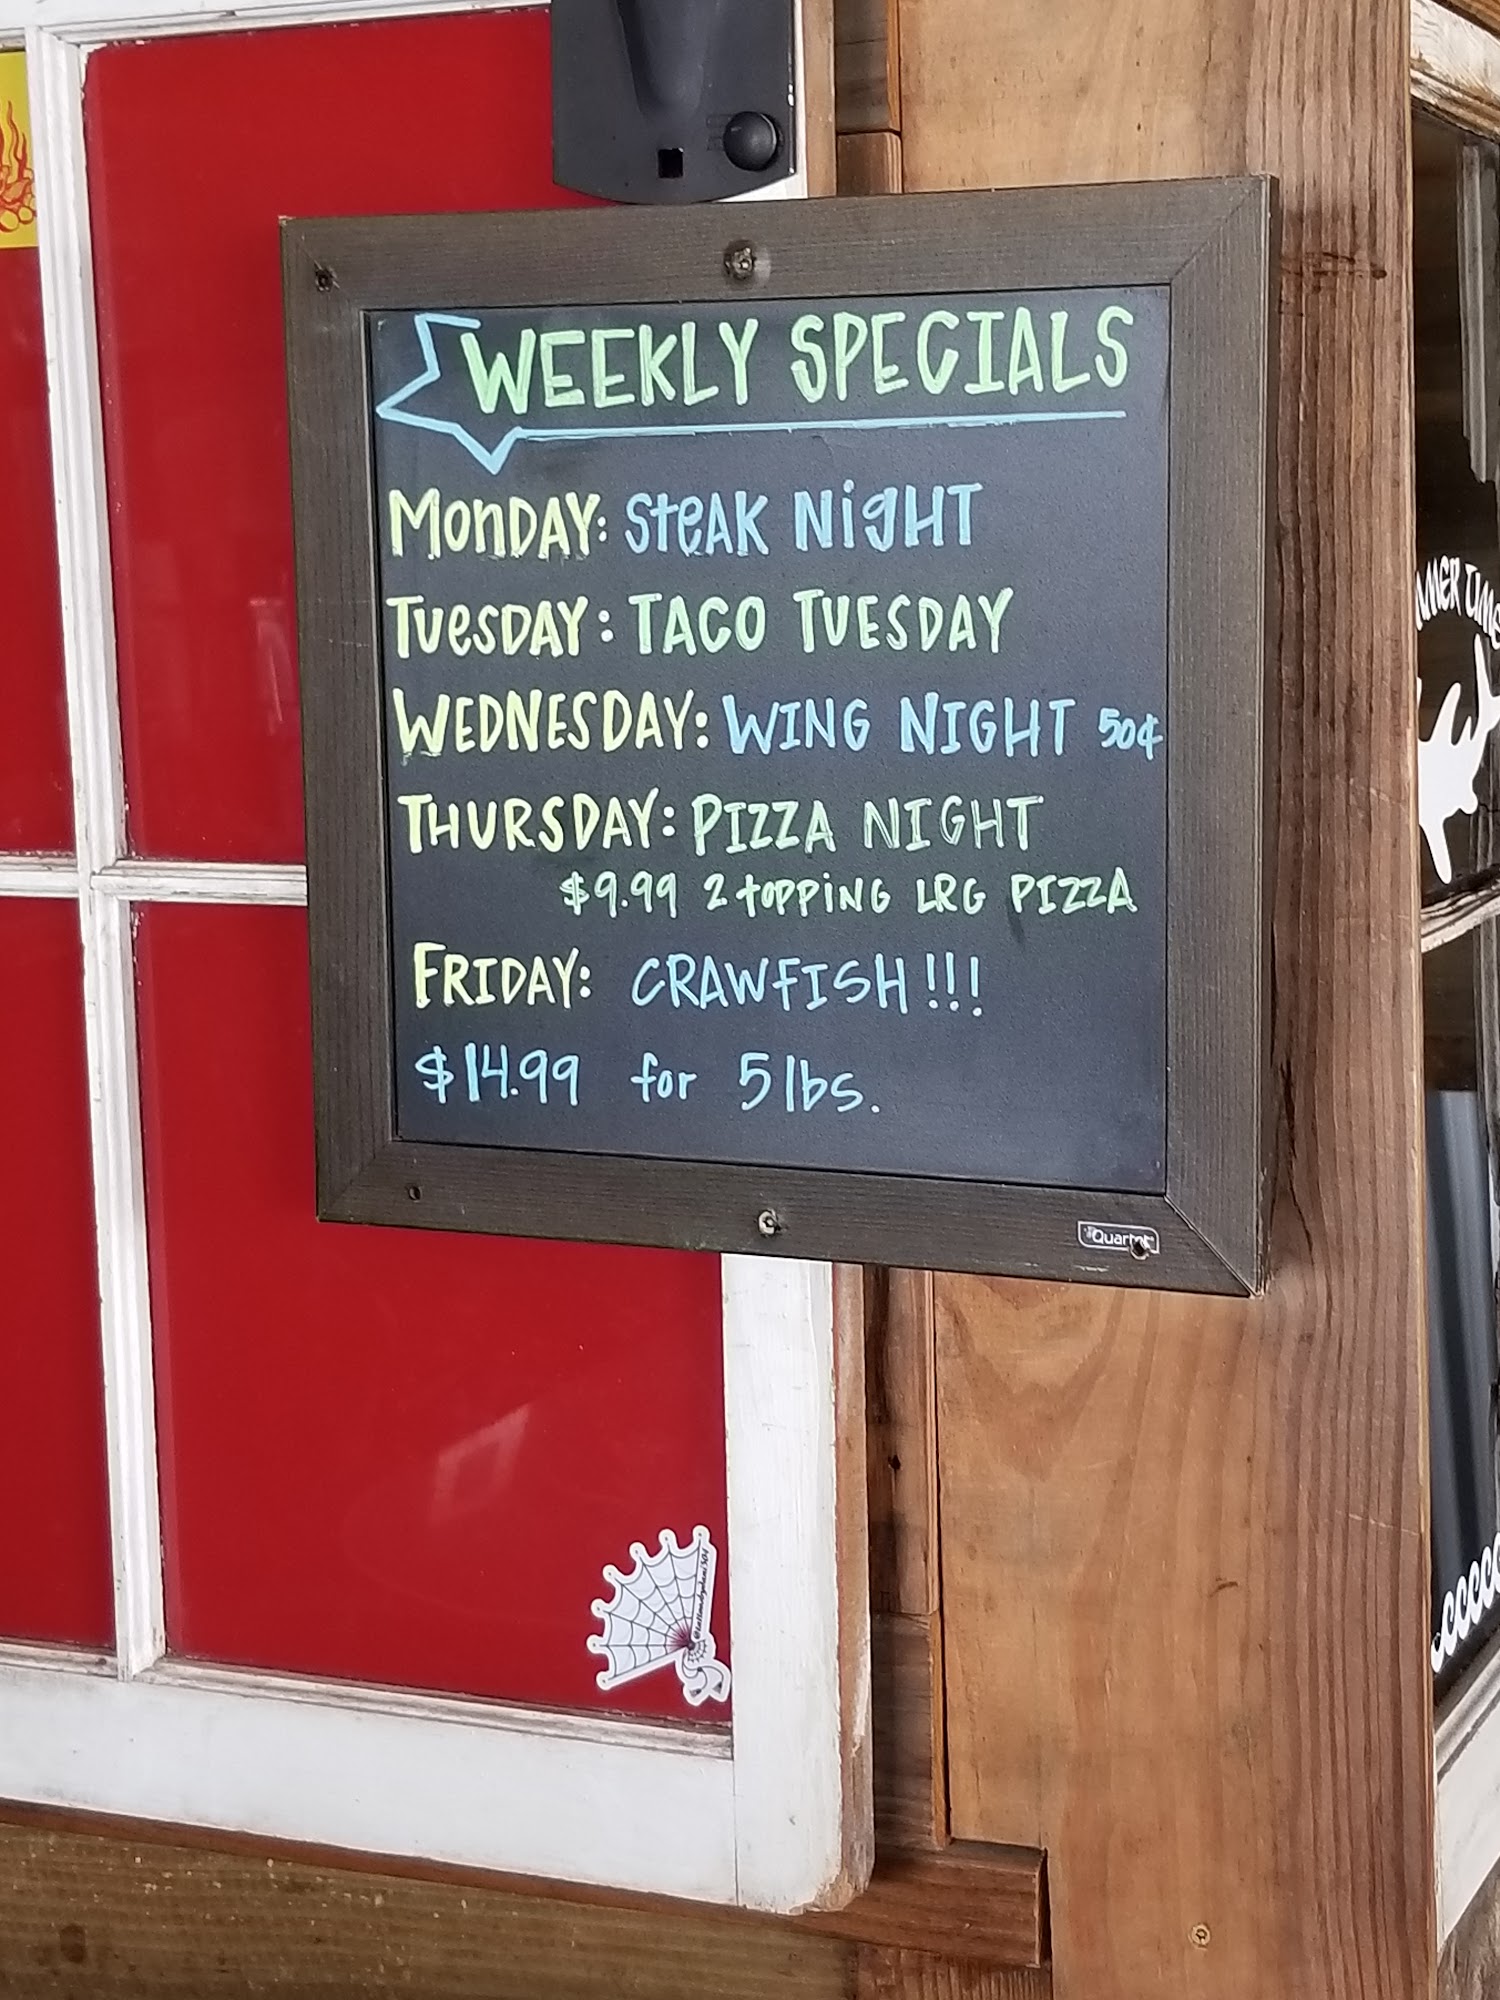 WEEKLY SPECIALS
MONDAY: STEAK NIGHT
TUESDAY: TACO TUESDAY
WEDNESDAY: WING NIGHT 50¢
THURSDAY: PIZZA NIGHT
$9.99 2 topping LRG PIZZA
FRIDAY: CRAWFISH!!!
$14.99 for 5 lbs.
Quartet